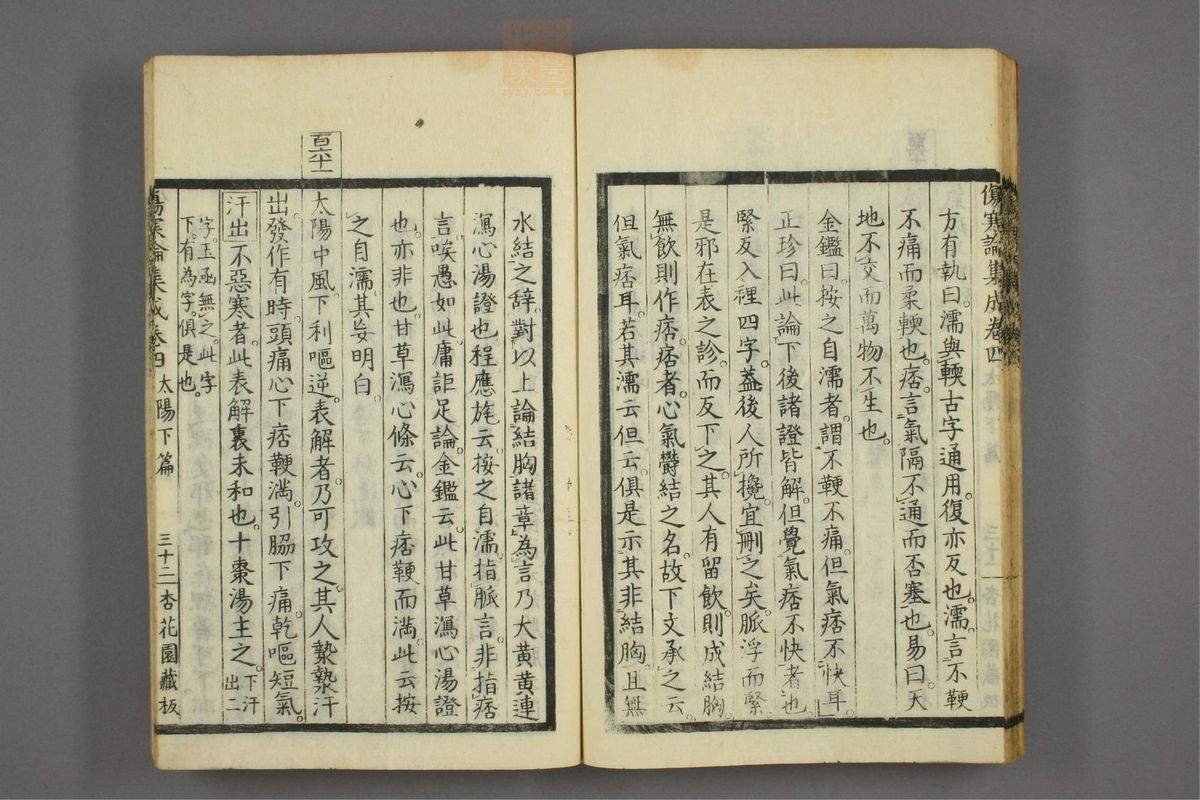 傷寒論集成卷四
方有執曰。濡與輭古字通用。復亦反也。濡。言不鞕
不痛而柔輭也。痞。言氣隔不通而否塞也。易曰。天
地不交而萬物不生也。
金鑑曰。按之自濡者。謂不鞕不痛。但氣痞不快耳。
正珍曰。此論下後諸證皆解。但覺氣痞不快者也
緊反入裡四字。蓋後人所攙。宜刪之矣。脈浮而緊
是邪在表之診。而反下之。其人有留飲。則成結胸。
無飲則作痞。痞者。心氣欝結之名。故下文承之云。
但氣痞耳。若其濡云但云。俱是示其非結胸。且無
水結之辞。對以上論結胸諸章為言乃大黃黃連
瀉心湯證也。程應旄云。按之自濡。指脈言。非指痞
言。唉愚如此。庸詎足論。金鑑云。此甘草瀉心湯證
也。亦非也。甘草瀉心條云。心下痞鞕而滿。此云按
之自濡。其妄明白。
百六十一
太陽中風。下利嘔逆。表解者。乃可攻之。其人漐漐汗
出。發作有時。頭痛心下痞鞕滿。引脇下痛。乾嘔短氣。
汗出不惡寒者。此表解裏未和也。十棗湯主之。下汗出二
字。玉函無之。此字
下。有為字。俱是也。
傷寒論集成卷四 太陽下篇 三十二 杏花園藏板